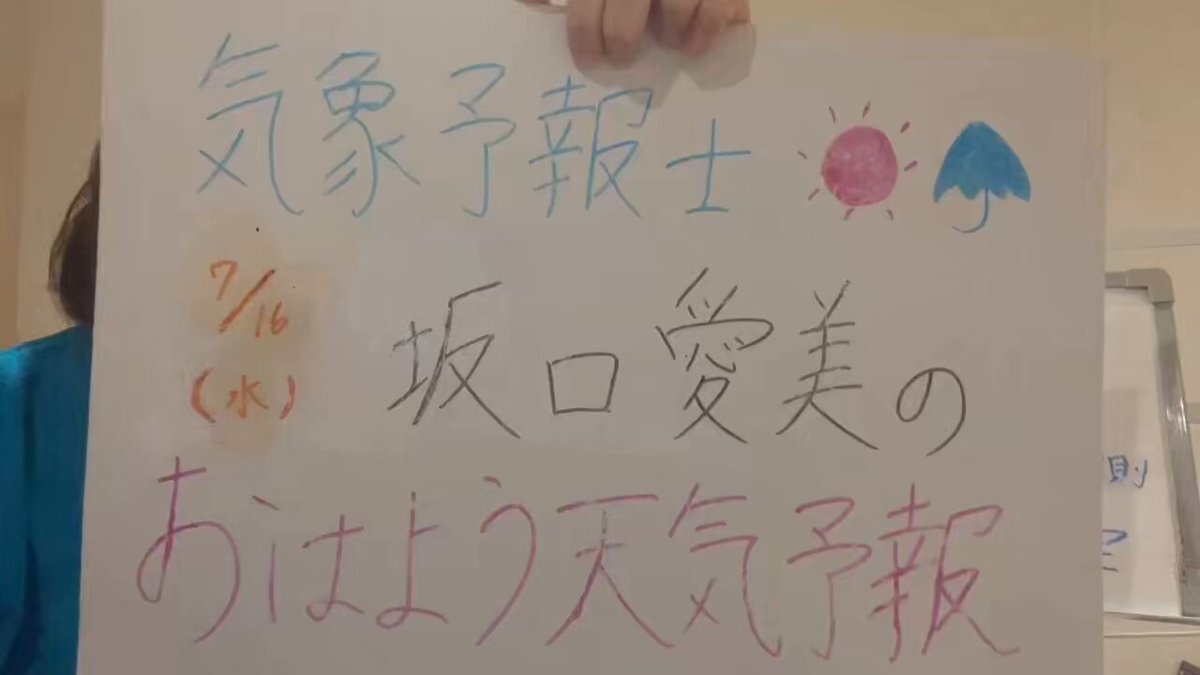 気象予報士
7/16
(水)
坂口愛美の
おはよう天気予報
則